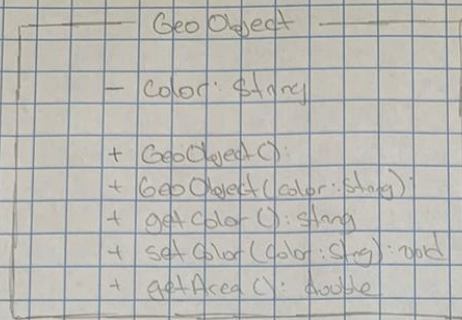 GeoObject
- Color: String
+ GeoObject():
+ GeoObject(color: String):
+ getColor(): String
+ setColor(Color: Strg): void
+ getArea(): double